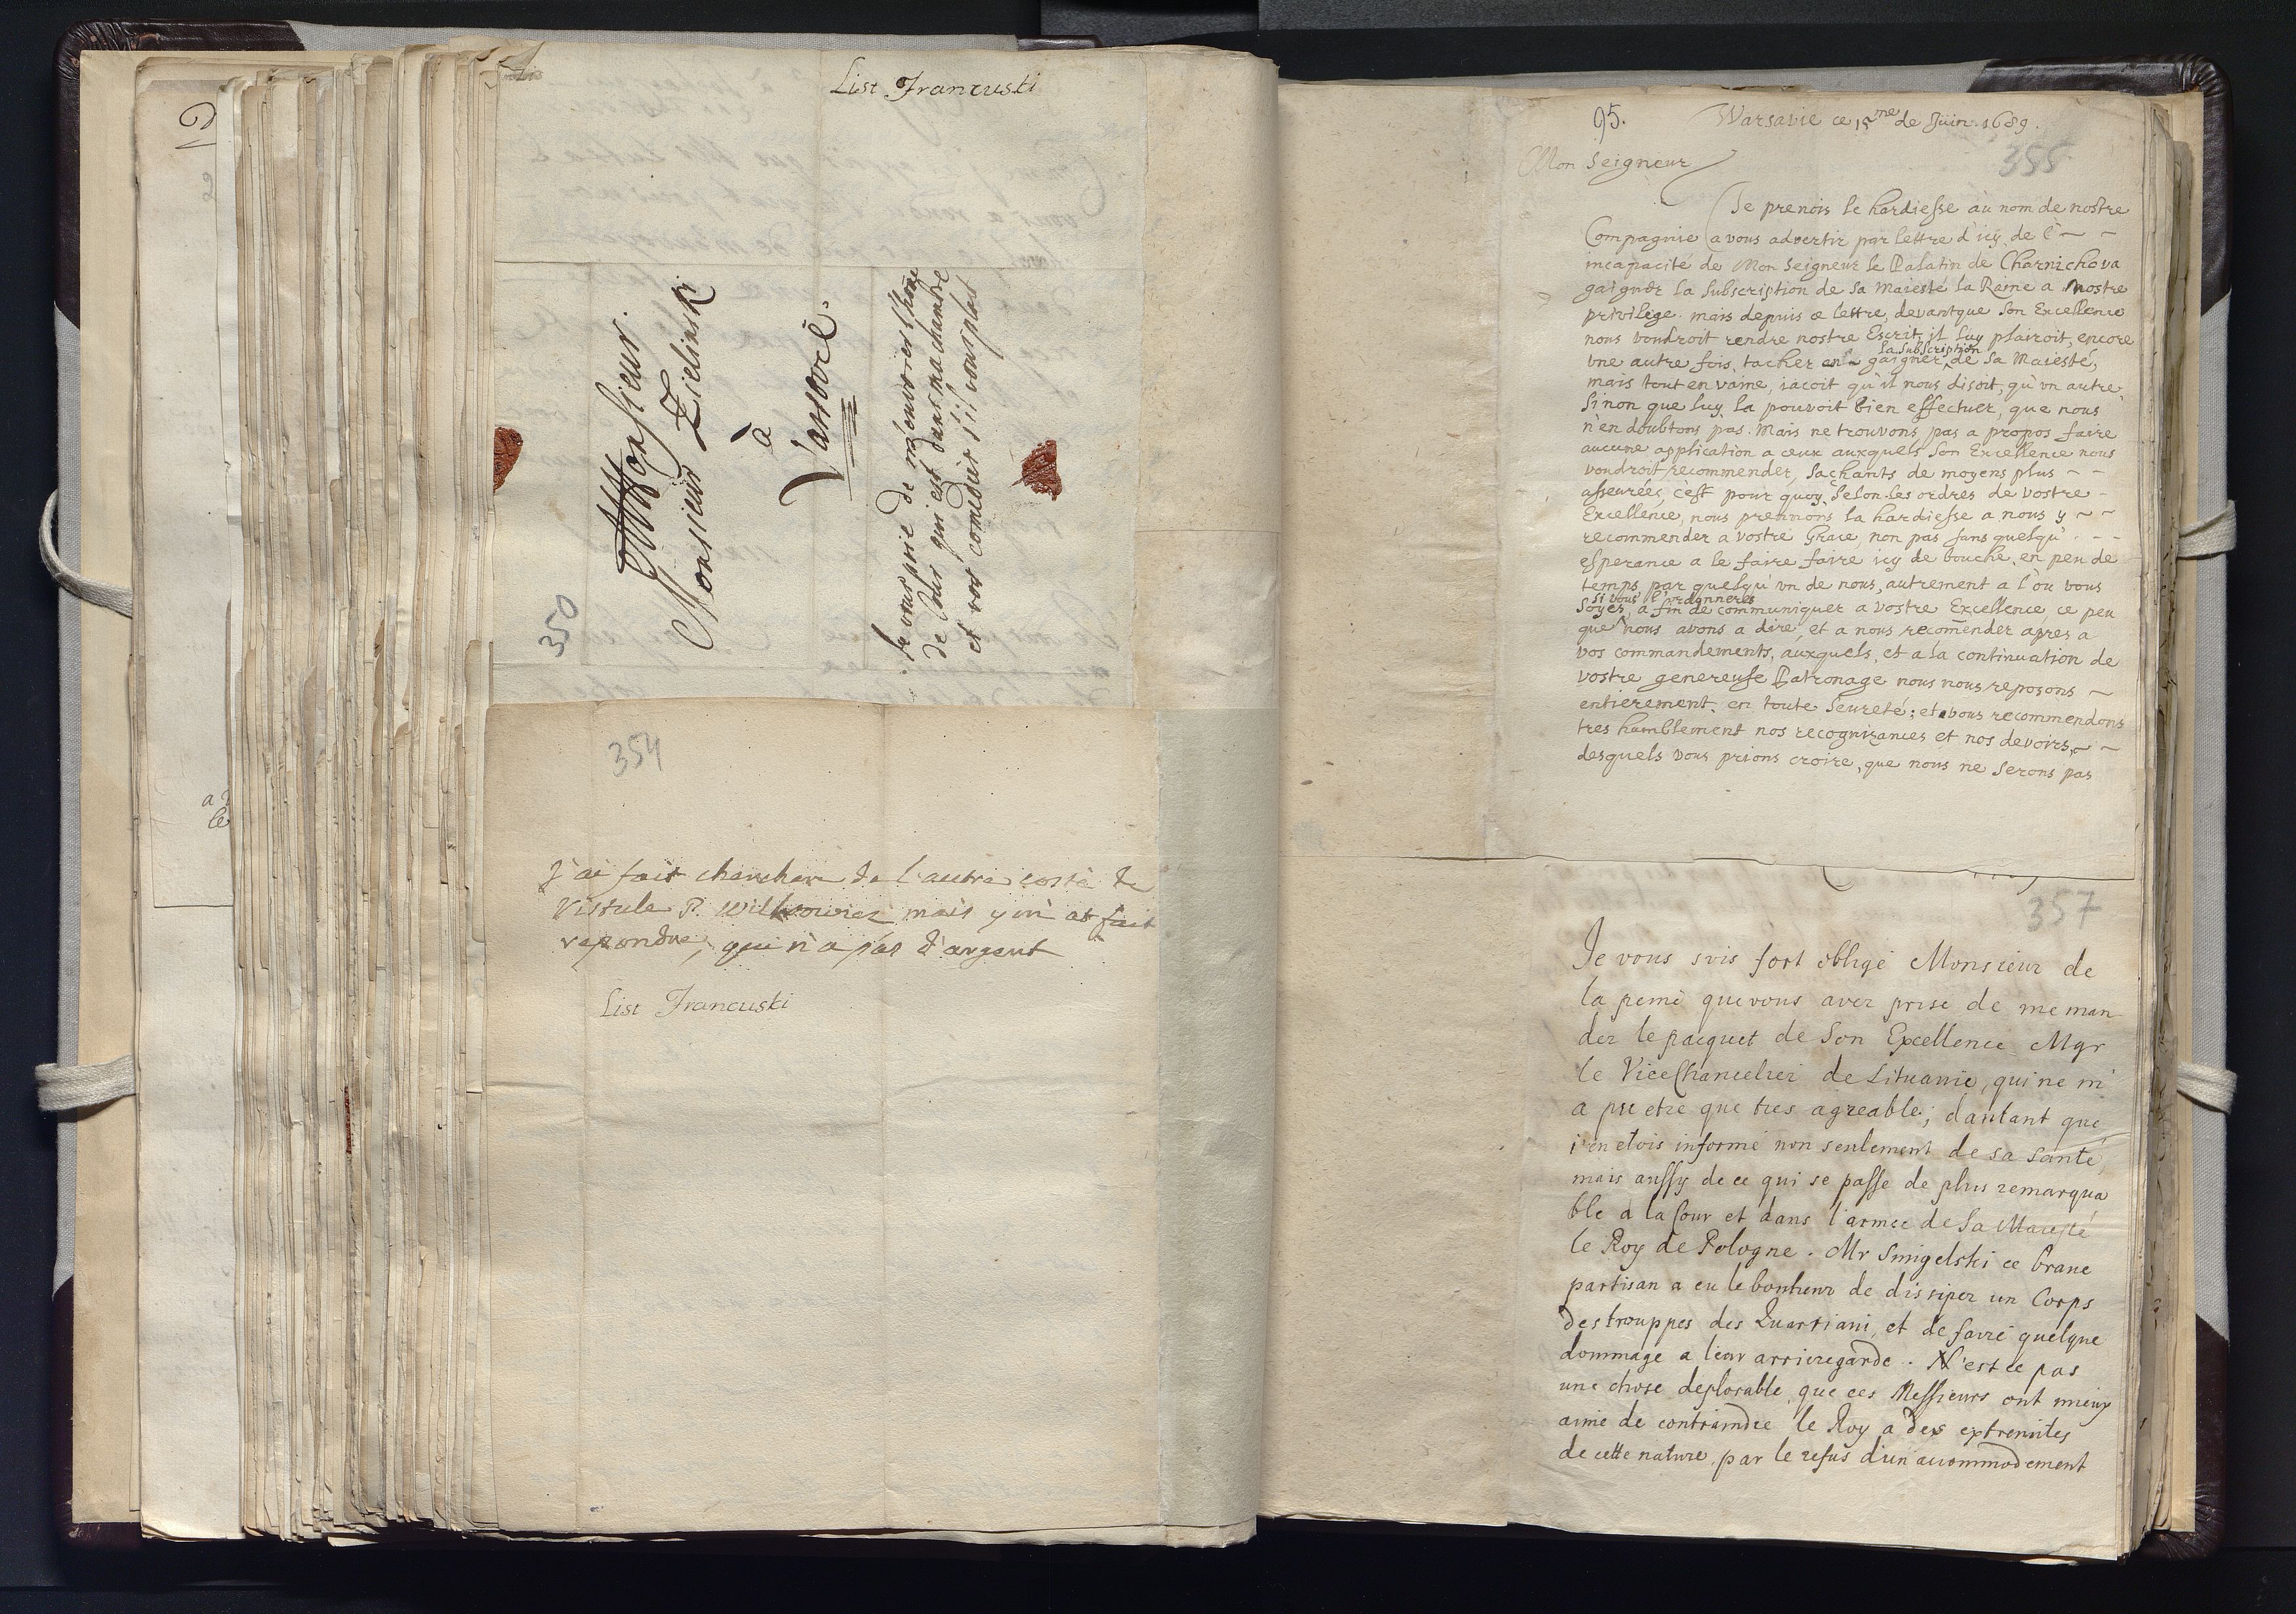 List Francuski
350
A Monsieur.
Monsieur Zielinski
à
Varsovie.
Je vous prie de m'envoier l'home
de Cour qui est dans ma chambre
et vos comedies s'il vous plait
354
J'ai fait chercher de l'autre costé de
Vistule P. mais y m' at fait
repondre, qui n'a pas d'argent
List Francuski
95. Warsavie ce 15me de Juin. 1689.
355
Mon Seigneur
Je prenois le hardiesse au nom de nostre
Compagnie a vous advertir par lettre d'icy de l'
incapacité de Mon Seigneur le Palatin de Charnichova
gaigner la Subscription de Sa Maiesté la Raine a Nostre
privilège. mais depuis ce lettre, devantque Son Excellence
nous voudroit rendre nostre Escrit, il luy plairoit, encore
vne autre fois, tacher en gaigner la Subscription de Sa Maiesté,
mais tout en vaine, iacoit qu'il nous disoit, qu'vn autre,
Sinon que luy la pouvoit bien effectuer, que nous
n'en doubtons pas. Mais ne trouvons pas a propos faire
aucune application a ceux auxquels Son Excellence nous
voudroit recommender, Sachants de moyens plus
asseurées, c'est pour quoy Selon les ordres de vostre
Excellence, nous prennons la hardiesse a nous y
recommender a vostre Grace, non pas sans quelqu'
esperance a le faire faire icy de bouche, en peu de
temps, par quelqu'vn de nous, autrement a l'ou vous
Soyes, si vous l'ordonneres a fin de communiquer a vostre Excellence, ce peu
que nous avons a dire, et a nous recomender apres a
vos commandements, auxquels, et a la continuation de
vostre genereuse Patronage nous nous reposons
entierement. en toute Seureté; et vous recommendons
tres humblement nos recognizances et nos devoirs,
desquels vous prions croire, que nous ne serons pas
357
Je vous svis fort obligé Monsieur de
la peine que vous avez prise de me man
der le pacquet de Son Excellence Mgr
le ViceChancelier de Lituanie, qui ne m'
a pu etre que tres agreable; dautant que
j'en etois informé non seulement de sa santé,
mais aussy de ce qui se passe de plus remarqua
ble a la Cour et dans l'armee de Sa Maiesté
le Roy de Pologne. Mr Smigelski ce brave
partisan a eu le bonheur de dissiper un Corps
des trouppes des Quartiani, et de faire quelque
dommage a leur arrieregarde. N'est ce pas
une chose deplorable, que ces Messieurs ont mieux
aimé de contraindre le Roy a des extremites
de cette nature, par le refus d'un accommodement